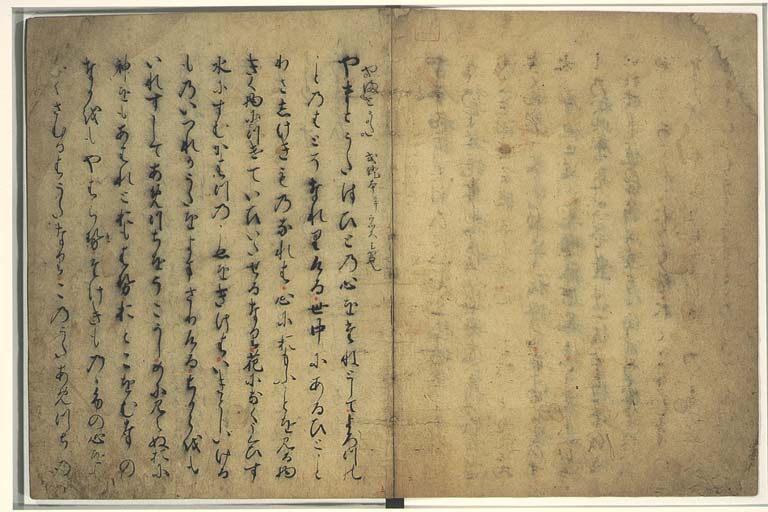 やまとうたはひとの心をたねとしてよろつの
ことのはとそなれりける世中にあるひとこと
わさしけきものなれは心におもふことを見る物
きく物につけていひいたせるなり花になくうくひす
水にすむかはつのこゑをきけはいきとしいける
ものいつれかうたをよまさりけるちからをも
いれすしてあめつちをうこかしめに見えぬおに
神をもあはれとおもはせおとこをむなの
なかをもやはらけたけきものゝふの心をも
なくさむるはうたなりこのうたあめつちの